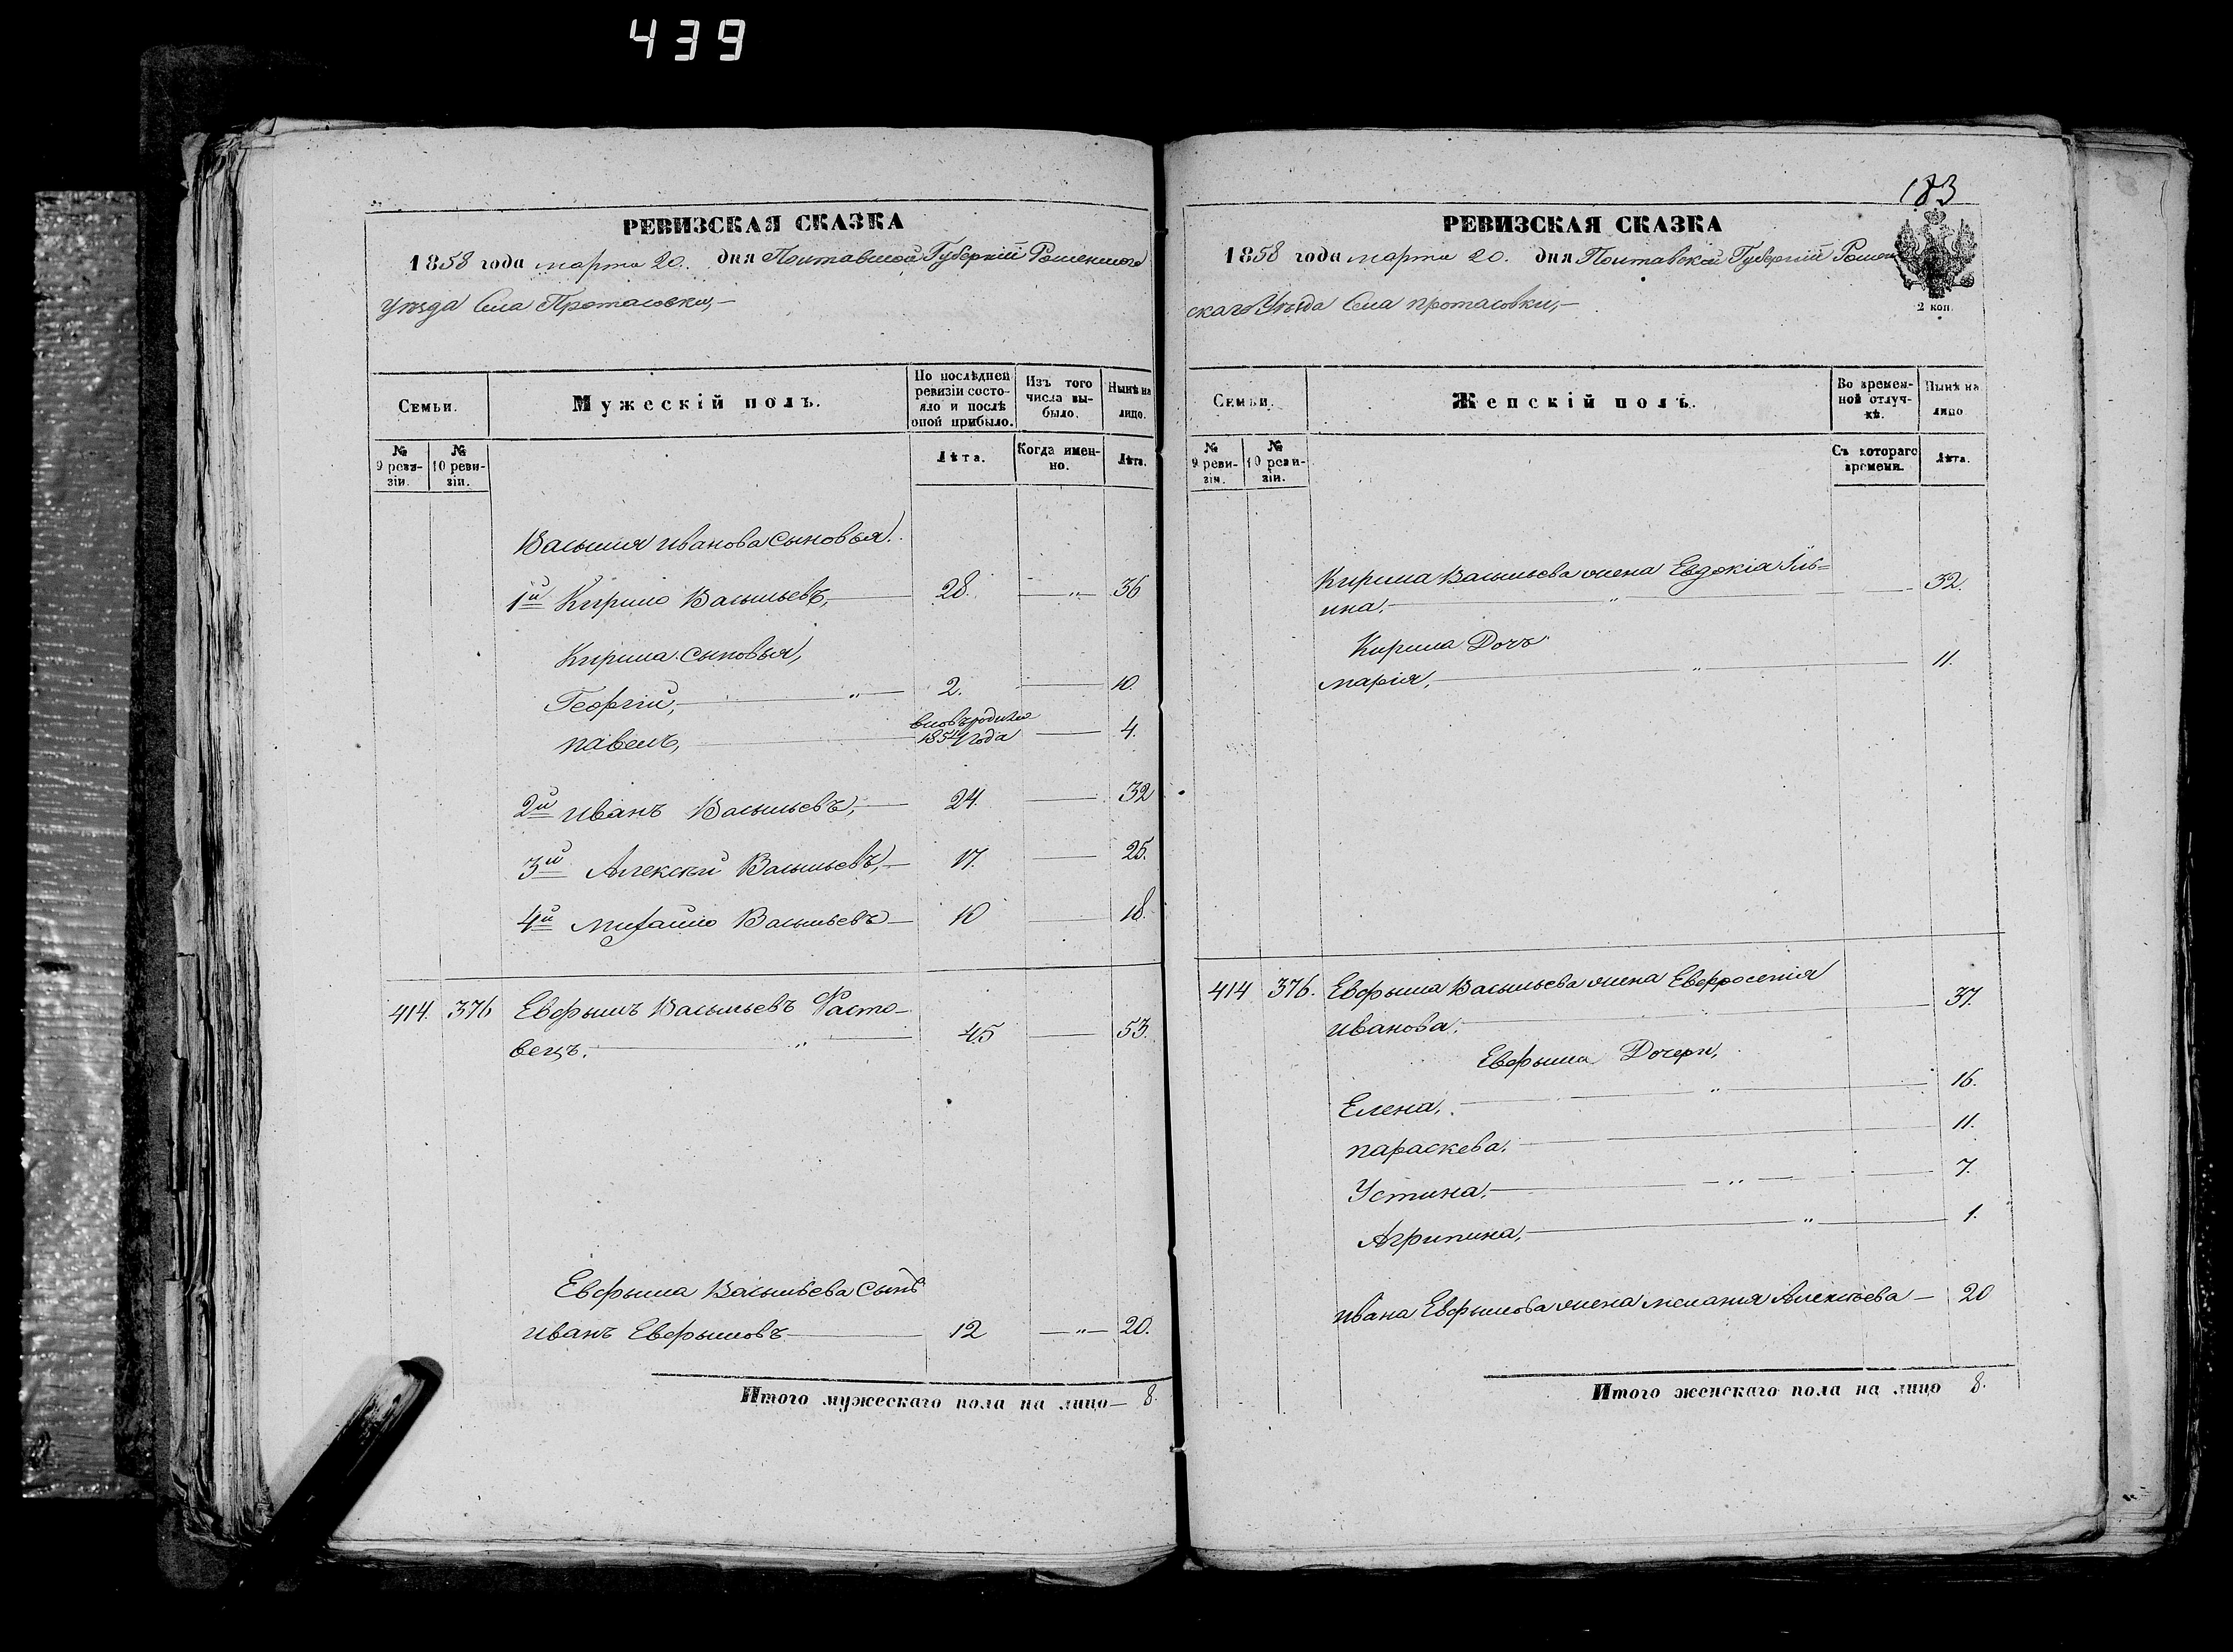 439
РЕВИЗСКАЯ СКАЗКА
1858 года марта 20. дня Полтавской Губерніи Роменского
уезда Села Протасовки,—
Семьи.
Мужескій полъ.
По послѣдней ревизіи состояло и послѣ оной прибыло.
Изъ того числа выбыло.
Нынѣ на лицо.
№ 9 ревизіи.
№ 10 ревизіи.
Лѣта.
Когда именно.
Лѣта.
Василия иванова сыновья.
1й Кирило Васильевъ, 28. — 36
Кирила сыновья,
Георгій, 2. — 10.
павелъ, вновь родился 1854 года — 4.
2й иванъ Васильевъ, 24. — 32
3й Алексей Васильевъ, 17. — 25.
4й михайло Васильевъ — 10 — 18.
414. 376 Евфымъ Васильевъ Расто-
вецъ. 45 — 53.
Евфыма Васильева сынъ
иванъ Евфымовъ — 12 — 20.
Итого мужескаго пола на лицо — 8.
183
РЕВИЗСКАЯ СКАЗКА
1858 года марта 20. дня Полтавской Губерніи Ромен
скаго Уѣзда Села протасовки,—
2 коп.
Семьи.
Женскій полъ.
Во временной отлучкѣ.
Нынѣ на лицо
№ 9 ревизіи.
№ 10 ревизіи.
Съ котораго времени.
Лѣта.
Кирила Васильева жена Евдокія Иль=
ина. — 32.
Кирила Дочь
марія. — 11.
414 376. Евфыма Васильева жена Евфросенія
иванова. — 37.
Евфыма Дочери,
Елена. — 16.
параскева. — 11.
Устина. — 7.
Агрипина. — 1.
ивана Евфымова жена мелания Алексѣева — 20
Итого женскаго пола на лицо 8.